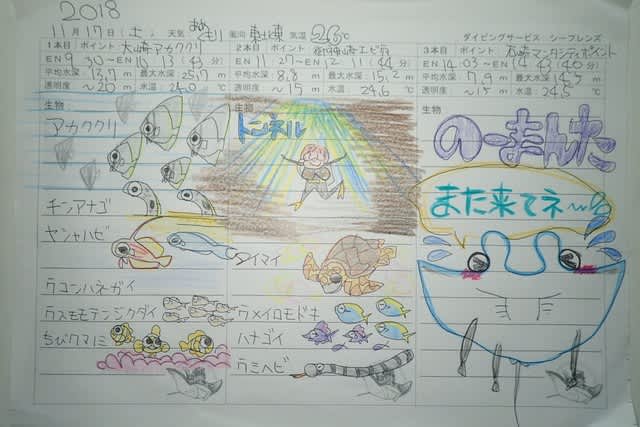 2018
11月17日(土) 天気 あめ くもり 風向 東北東 気温 26℃ ダイビングサービス シーフレンズ
1本目 ポイント 大崎アカククリ
EN 9:30~EN 10:13 (43分)
平均水深 13.7m 最大水深 25.7m
透明度 ~20m 水温 24.0℃
生物
アカククリ
チンアナゴ
ヤシャハゼ
ウコンハネガイ
ウスモモテンジクダイ
ちびクマノミ
2本目 ポイント 御神崎エビ穴
EN 11:27~EN 12:11 (44分)
平均水深 8.8m 最大水深 15.2m
透明度 ~15m 水温 24.6℃
生物
トンネル
タイマイ
ウメイロモドキ
ハナゴイ
ウミヘビ
3本目 ポイント 大崎マンタシティポイント
EN 14:03~EN 14:43 (40分)
平均水深 7.9m 最大水深 14.5m
透明度 ~15m 水温 24.5℃
生物
のーまんた
また来てネ~